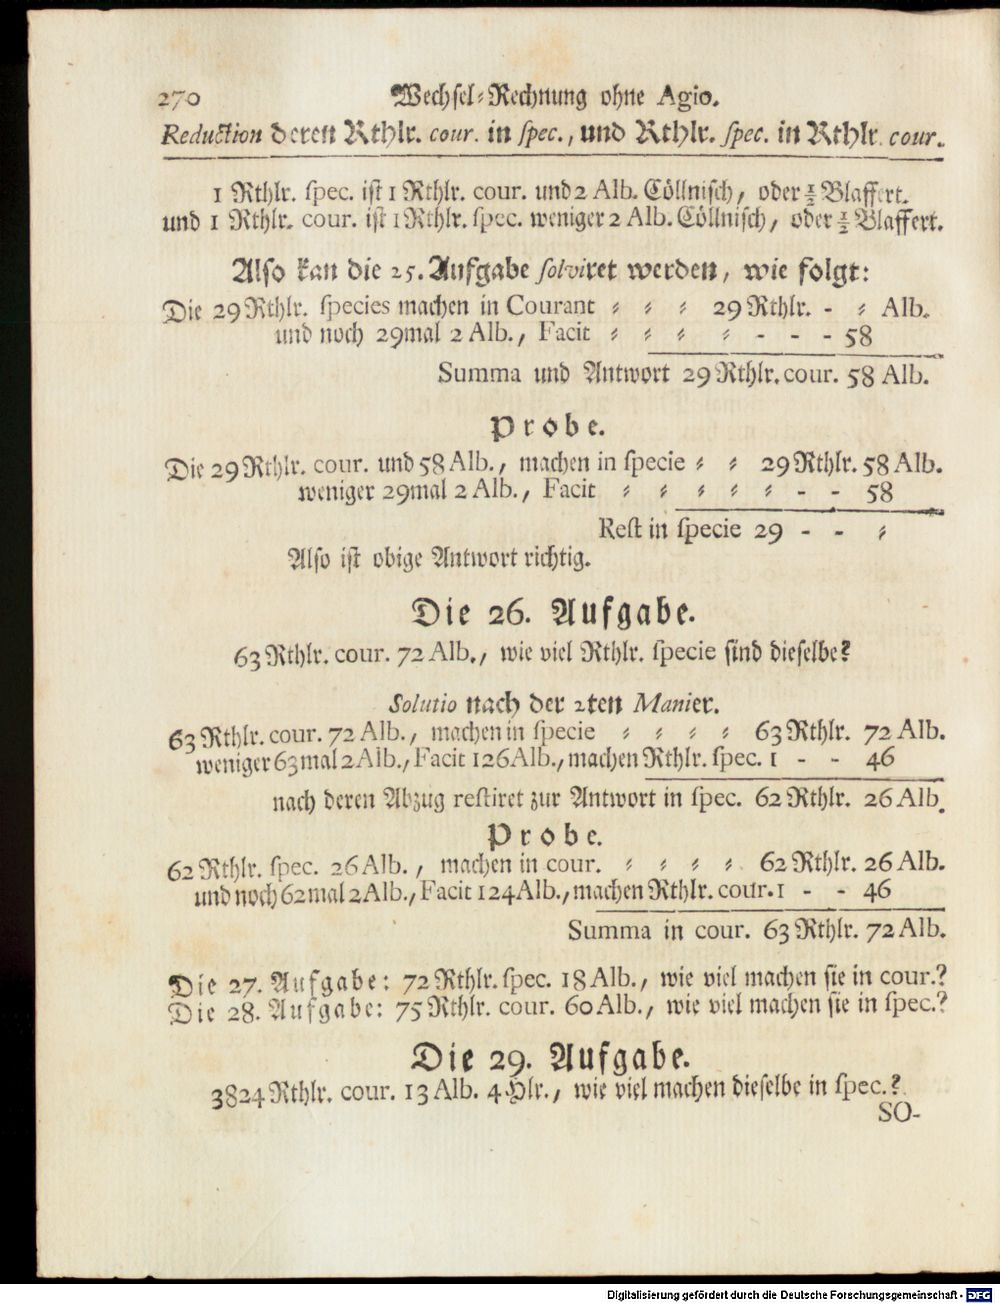 270 Wechsel⸗Rechnung ohne Agio.
Reduction deren Rthlr. cour. in spec., und Rthlr. spec. in Rthlr. cour.
1 Rthlr. spec. ist 1 Rthlr. cour. und 2 Alb. Cöllnisch, oder ½ Blaffert.
und 1 Rthlr. cour. ist 1 Rthlr. spec. weniger 2 Alb. Cöllnisch, oder ½ Blaffert.
Also kan die 25. Aufgabe solviret werden, wie folgt:
Die 29 Rthlr. species machen in Courant ⸗ ⸗ ⸗ 29 Rthlr. - ⸗ Alb.
und noch 29mal 2 Alb., Facit ⸗ ⸗ ⸗ ⸗ - - - 58
Summa und Antwort 29 Rthlr. cour. 58 Alb.
Probe.
Die 29 Rthlr. cour. und 58 Alb., machen in specie ⸗ ⸗ 29 Rthlr. 58 Alb.
weniger 29mal 2 Alb., Facit ⸗ ⸗ ⸗ ⸗ ⸗ - - 58
Rest in specie 29 - - ⸗
Also ist obige Antwort richtig.
Die 26. Aufgabe.
63 Rthlr. cour. 72 Alb., wie viel Rthlr. specie sind dieselbe?
Solutio nach der 2ten Manier.
63 Rthlr. cour. 72 Alb., machen in specie ⸗ ⸗ ⸗ ⸗ 63 Rthlr. 72 Alb.
weniger 63mal 2 Alb., Facit 126 Alb., machen Rthlr. spec. 1 - - 46
nach deren Abzug restiret zur Antwort in spec. 62 Rthlr. 26 Alb.
Probe.
62 Rthlr. spec. 26 Alb., machen in cour. ⸗ ⸗ ⸗ ⸗ 62 Rthlr. 26 Alb.
und noch 62mal 2 Alb., Facit 124 Alb., machen Rthlr. cour. 1 - - 46
Summa in cour. 63 Rthlr. 72 Alb.
Die 27. Aufgabe: 72 Rthlr. spec. 18 Alb., wie viel machen sie in cour.?
Die 28. Aufgabe: 75 Rthlr. cour. 60 Alb., wie viel machen sie in spec.?
Die 29. Aufgabe.
3824 Rthlr. cour. 13 Alb. 4 Hlr., wie viel machen dieselbe in spec.?
SO-
Digitalisierung gefördert durch die Deutsche Forschungsgemeinschaft - DFG